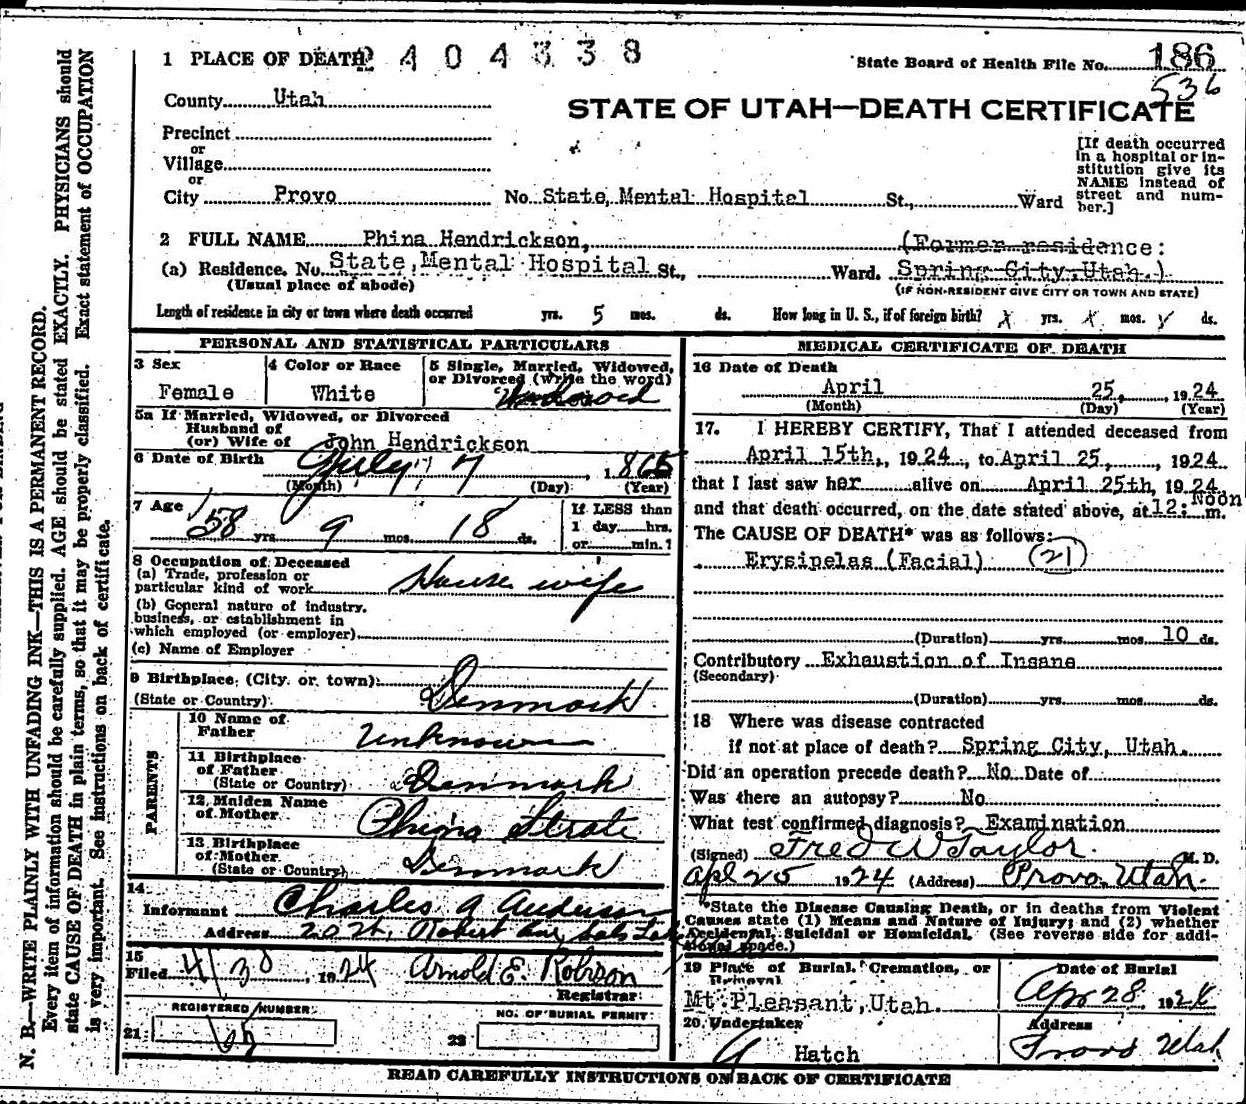 N. B.—WRITE PLAINLY WITH UNFADING INK—THIS IS A PERMANENT RECORD.
Every item of information should be carefully supplied. AGE should be stated EXACTLY. PHYSICIANS should
state CAUSE OF DEATH in plain terms, so that it may be properly classified. Exact statement of OCCUPATION
is very important. See instructions on back of certificate.
1 PLACE OF DEATH
2404338
State Board of Health File No. 186
536
County Utah
STATE OF UTAH—DEATH CERTIFICATE
Precinct
or
Village
or
City Provo No. State Mental Hospital St., Ward
[If death occurred
in a hospital or in-
stitution give its
NAME instead of
street and num-
ber.]
2 FULL NAME Phina Hendrickson, (Former residence:
(a) Residence. No. State Mental Hospital St., Ward. Spring City, Utah.)
(Usual place of abode) (IF NON-RESIDENT GIVE CITY OR TOWN AND STATE)
Length of residence in city or town where death occurred yrs. 5 mos. ds. How long in U. S., if of foreign birth? x yrs. x mos. y ds.
PERSONAL AND STATISTICAL PARTICULARS
3 Sex
Female
4 Color or Race
White
5 Single, Married, Widowed,
or Divorced (write the word)
5a If Married, Widowed, or Divorced
Husband of
(or) Wife of John Hendrickson
6 Date of Birth July 7 1865
(Month) (Day) (Year)
7 Age
58 yrs 9 mos. 18 ds.
If LESS than
1 day hrs.
or min.?
8 Occupation of Deceased
(a) Trade, profession or
particular kind of work House wife
(b) General nature of industry,
business, or establishment in
which employed (or employer)
(c) Name of Employer
9 Birthplace (City or town)
(State or Country) Denmark
PARENTS
10 Name of
Father Unknown
11 Birthplace
of Father
(State or Country) Denmark
12 Maiden Name
of Mother Phina Strate
13 Birthplace
of Mother
(State or Country) Denmark
14
Informant Charles A Anderson
Address Robert Ave Salt Lake
15
Filed 4/30 1924 Arnold E. Robison
Registrar
REGISTERED NUMBER
21
NO. OF BURIAL PERMIT
22
MEDICAL CERTIFICATE OF DEATH
16 Date of Death
April 25, 1924
(Month) (Day) (Year)
17. I HEREBY CERTIFY, That I attended deceased from
April 15th, 1924, to April 25, 1924
that I last saw her alive on April 25th, 1924
and that death occurred, on the date stated above, at 12: Noon m.
The CAUSE OF DEATH* was as follows:
Erysipelas (Facial) (21)
(Duration) yrs. mos. 10 ds.
Contributory Exhaustion of Insane
(Secondary)
(Duration) yrs. mos. ds.
18 Where was disease contracted
if not at place of death? Spring City, Utah.
Did an operation precede death? No Date of
Was there an autopsy? No
What test confirmed diagnosis? Examination
(Signed) Fred W Taylor. M. D.
Apl 25 1924 (Address) Provo, Utah.
*State the Disease Causing Death, or in deaths from Violent
Causes state (1) Means and Nature of Injury; and (2) whether
Accidental, Suicidal or Homicidal. (See reverse side for addi-
tional space.)
19 Place of Burial, Cremation, or
Removal
Mt. Pleasant, Utah.
Date of Burial
Apr 28 1924
20 Undertaker
Hatch
Address
Provo Utah
READ CAREFULLY INSTRUCTIONS ON BACK OF CERTIFICATE